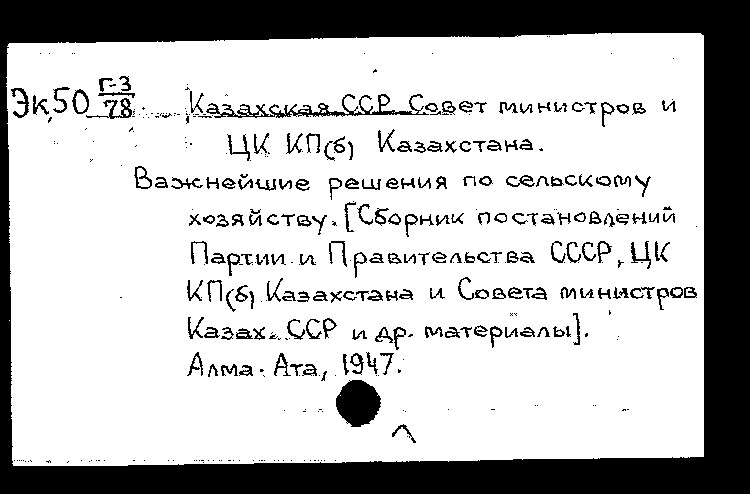 Эк50 Г-3/78 Казахская ССР Совет министров и
ЦК КП(б) Казахстана.
Важнейшие решения по сельскому
хозяйству. [Сборник постановлений
Партии и Правительства СССР, ЦК
КП(б) Казахстана и Совета министров
Казах. ССР и др. материалы].
Алма-Ата, 1947.